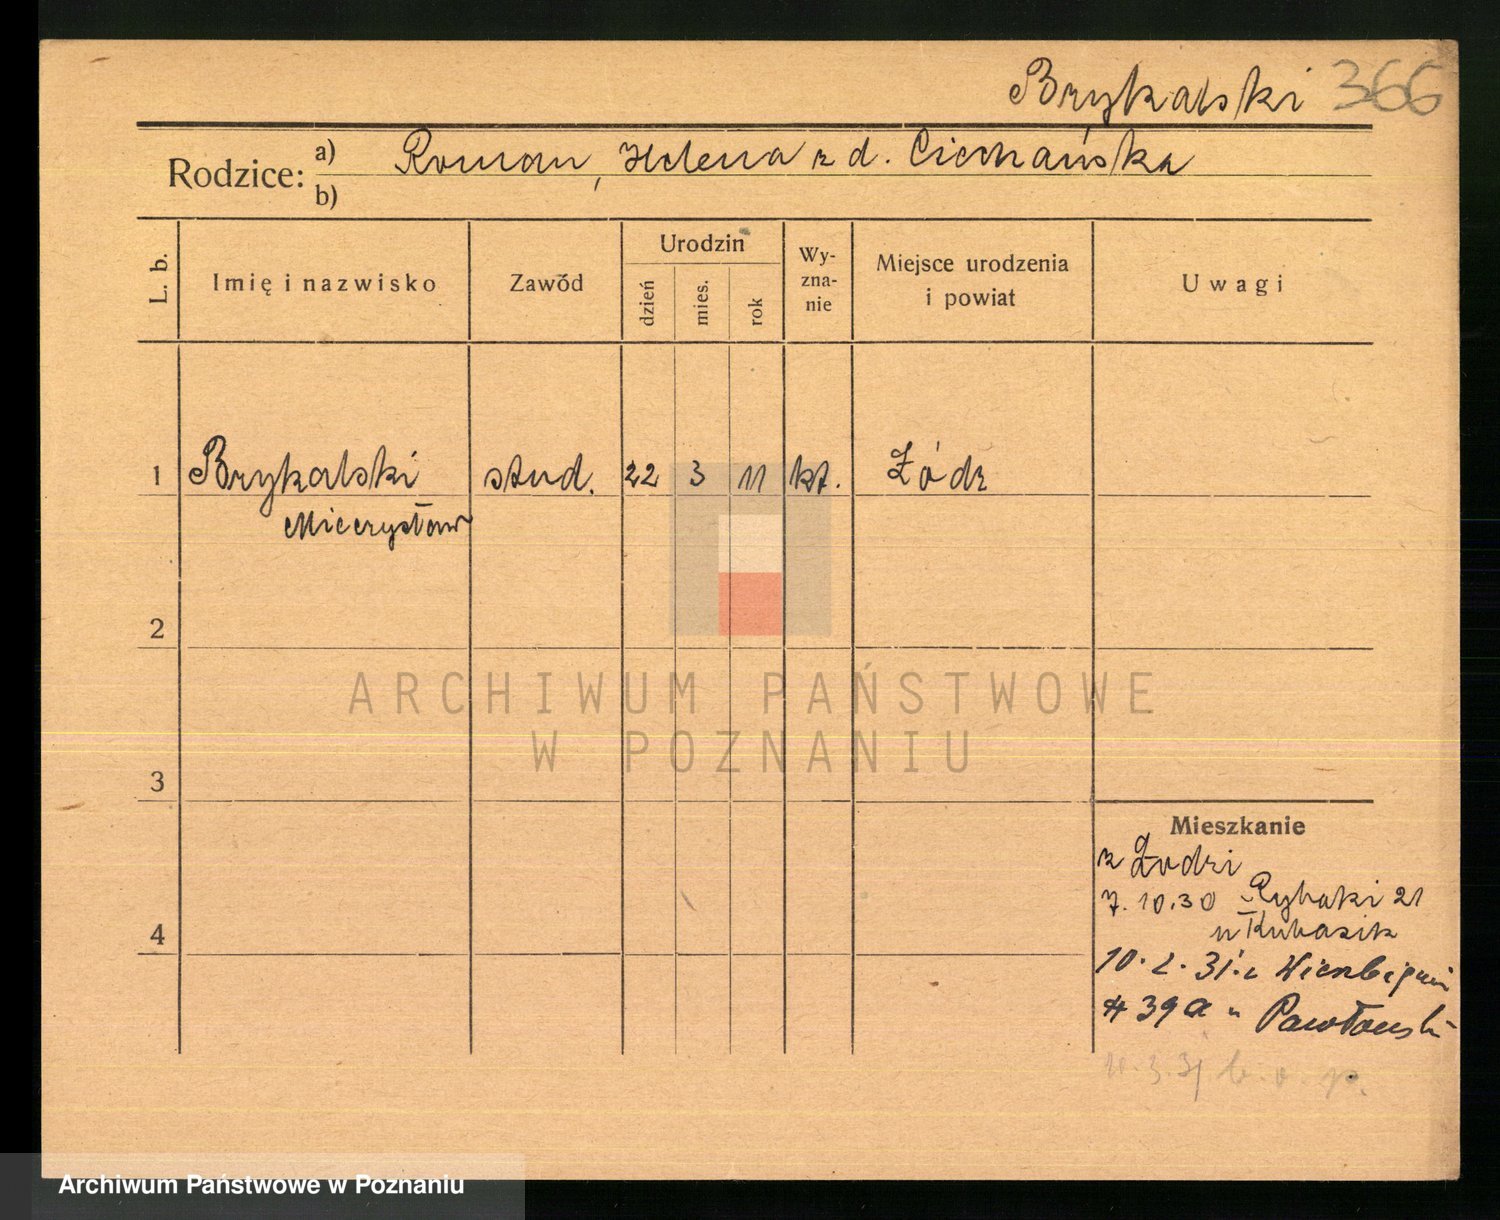 Brykalski 366
Rodzice: a) Roman, Helena z d. Ciechańska
b)
L. b.
Imię i nazwisko
Zawód
Urodzin
dzień
mies.
rok
Wy-
zna-
nie
Miejsce urodzenia
i powiat
Uwagi
1 Brykalski stud. 22 3 11 kt. Łódź
Mieczysław
2
3
4
Mieszkanie
z Łodzi
7.10.30 Rybaki 21
u Kubasik
10.2.31.
39a u Pawłowski
10.3.31
ARCHIWUM PAŃSTWOWE
W POZNANIU
Archiwum Państwowe w Poznaniu